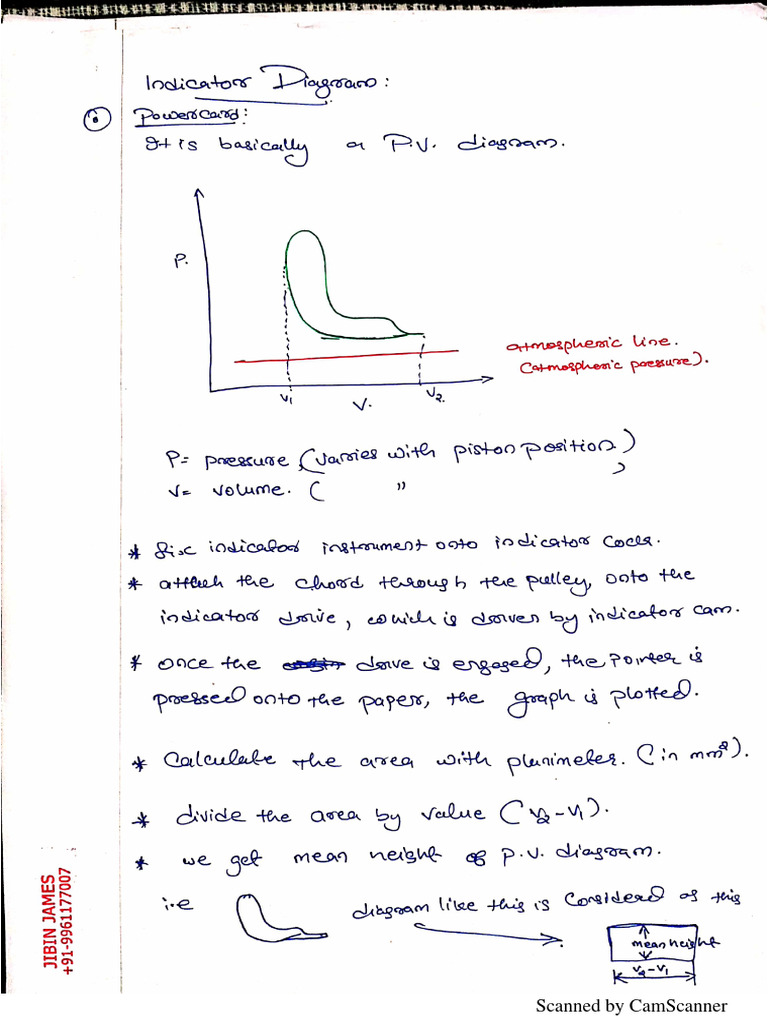 Indicator Diagram:
Powercard:
It is basically a P.V. diagram.
P.
atmospheric line.
(atmospheric pressure).
V1
V2
V.
P= pressure (varies with piston position)
V= volume. ( " )
* fix indicator instrument onto indicator cock.
* attach the chord through the pulley, onto the
indicator drive, which is driven by indicator cam.
* once the drive is engaged, the pointer is
pressed onto the paper, the graph is plotted.
* Calculate the area with planimeter. (in mm²).
* divide the area by value (V2-V1).
* we get mean height of P.V. diagram.
i.e diagram like this is considered as this
mean height
V2-V1
JIBIN JAMES
+91-9961177007
Scanned by CamScanner